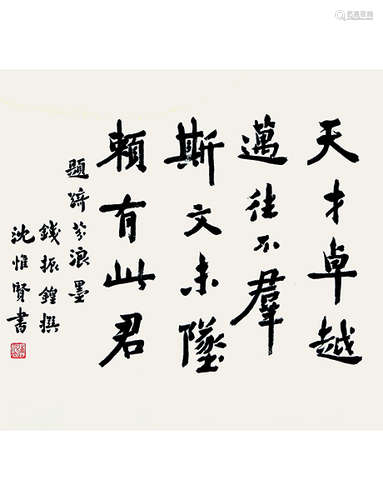 天才卓越
邁往不羣
斯文未墜
賴有此君
題蹄芬浪墨
錢振鍠撰
沈惟賢書